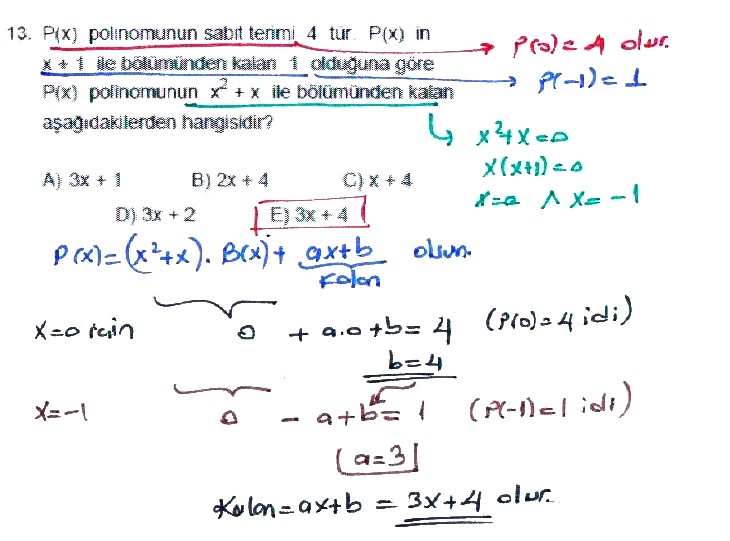 13. P(x) polinomunun sabit terimi 4 tür. P(x) in
x + 1 ile bölümünden kalan 1 olduğuna göre
P(x) polinomunun x² + x ile bölümünden kalan
aşağıdakilerden hangisidir?
P(0) = 4 olur.
P(-1) = 1
x²+x=0
x(x+1)=0
x=0 ∧ x=-1
A) 3x + 1 B) 2x + 4 C) x + 4
D) 3x + 2 E) 3x + 4
P(x)=(x²+x). B(x)+ ax+b olsun.
Kalan
x=0 için 0 + a.0+b= 4 (P(0)=4 idi)
b=4
x=-1 0 - a+b= 1 (P(-1)=1 idi)
a=3
Kalan=ax+b = 3x+4 olur.